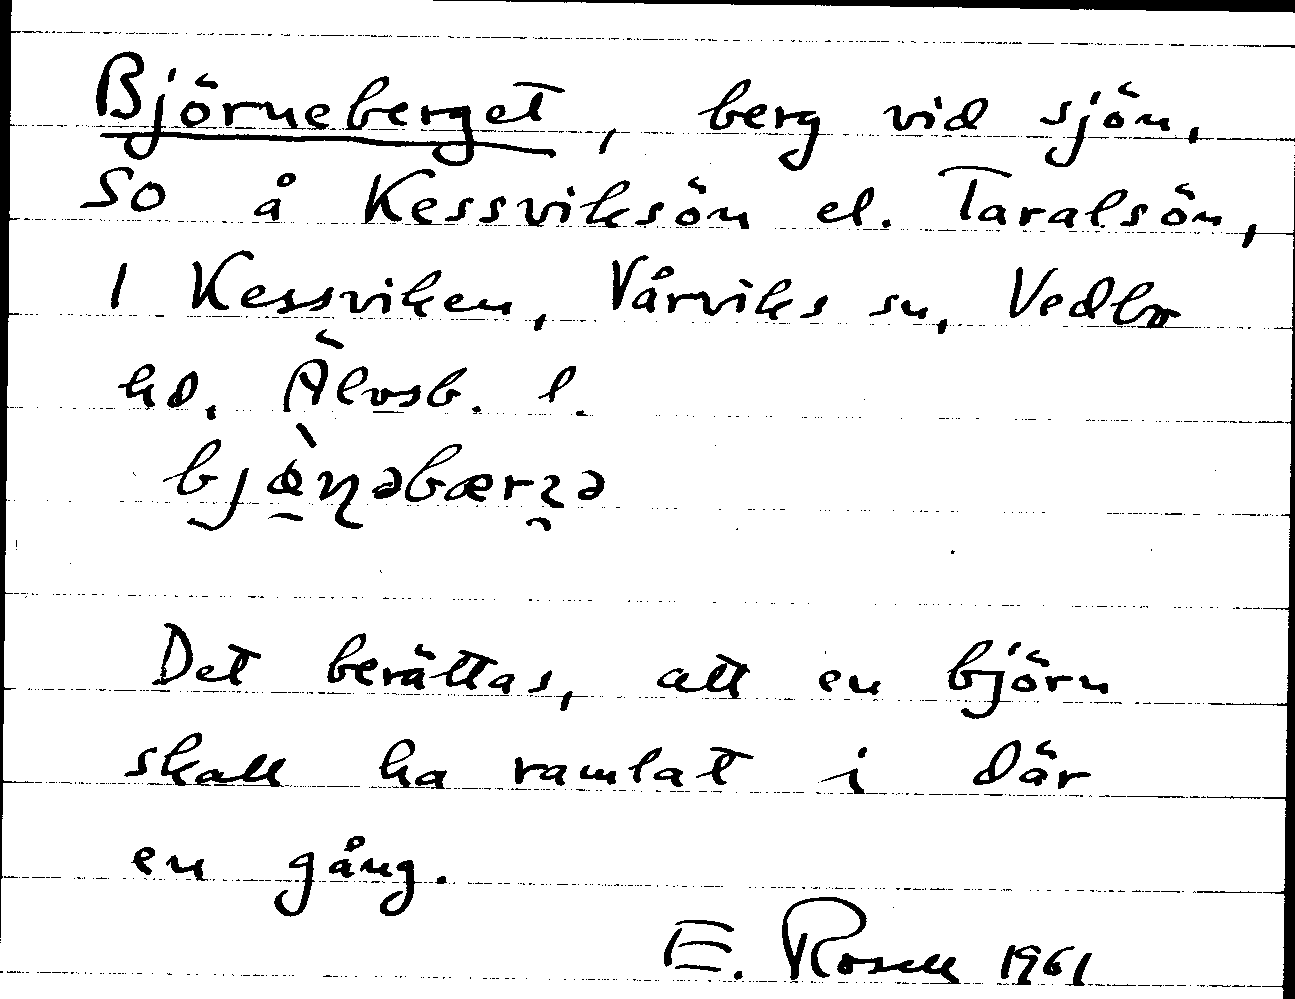 Björneberget, berg vid sjön,
SO å Kessviksön el. Taralsön,
I Kessviken, Vårviks sn, Vedbo
hd. Älvsb. l.
bjœ̀ɳəbærʓə
Det berättas, att en björn
skall ha ramlat i där
en gång.
E. Rosell 1961